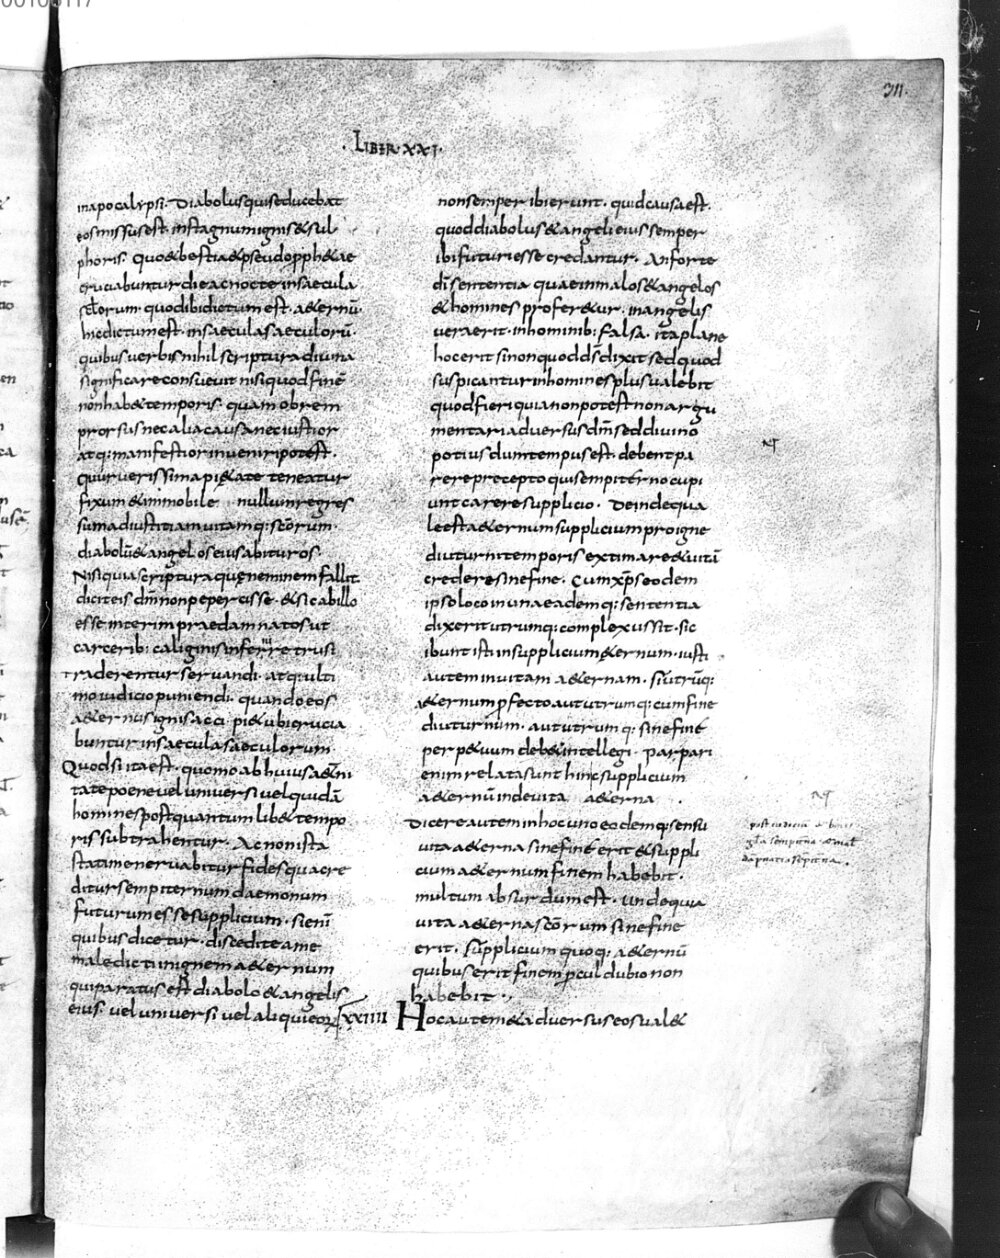 · LIBER · XXI ·
inapocalypsi · Diabolus quiseducebat
eos missus est · instagnum ignis & sul
phoris · quo & bestia & pseudopph&ae
cruciabuntur die ac nocte insaecula
sclorum · quod ibi dictum est · a&ernū ·
hic dictum est · insaecula saeculorū ·
quibus verbis nihil scriptura divina
significare consuevit nisi quod finē
non hab& temporis · quam obrem
prorsus nec alia causa nec iustior
atq; manifestior inveniri potest ·
cur verissima pi&ate teneatur
fixum & inmobile nullum regres
sum ad iustitiam vitamq; scōrum ·
diabolū & angelos eius abituros ·
Nisi quia scriptura quę neminem fallit
dicit eis dm̄ non pepercisse · & sic ab illo
esse interim praedamnatos ut
carcerib; caliginis inferre trusi
traderentur servandi · atq; ulti
mo iudicio puniendi · quando eos
a&ernus ignis accipi& ubi crucia
buntur in saecula saeculorum ·
Quod si ita est · quomo ab huius a&ni
tate poene vel universi vel quidā
homines post quantum lib& tempo
ris subtrahentur · Ac non ista
statim enervabitur fides qua cre
ditur sempiternum daemonum
futurum esse supplicium · si enī
quibus dicetur · discedite a me
maledicti in ignem a&ernum
qui paratus est diabolo & angelis
eius · vel universi vel aliqui eoꝝ
non semper ibi erunt · quid causa est ·
quod diabolus & angeli eius semper
ibi futuri esse credantur · An forte
dī sententia quae in malos & angelos
& homines profer&ur · in angelis
vera erit · in hominib; falsa · ita plane
hoc erit si non quod ds̄ dixit sed quod
suspicantur homines plus valebit
quod fieri quia non potest non argu
mentari adversus dm̄ sed divino
potius dum tempus est · debent pa
rere precepto qui sempiterno cupi
unt carere supplicio · Deinde qua
le est a&ernum supplicium pro igne
diuturni temporis extimare & vitā
credere sine fine · Cum xp̄s eodem
ipso loco in una eademq; sententia
dixerit utrumq; complexus sit · sic
ibunt isti in supplicium &ernum · iusti
autem in vitam a&ernam · Si utrūq;
a&ernum pfecto aut utrumq; cum fine
diuturnum · aut utrumq; sine fine
perp&uum deb& intellegi · par pari
enim relata sunt hinc supplicium
a&ernū inde vita a&erna ·
Dicere autem in hoc uno eodemq; sensu
vita a&erna sine fine erit & suppli
cium a&ernum finem habebit ·
multum absurdum est · unde quia
vita a&erna scōrum sine fine
erit · Supplicium quoq; a&ernū
quibus erit finem pcul dubio non
habebit ·
XXIIII Hoc autem & adversus eos val&